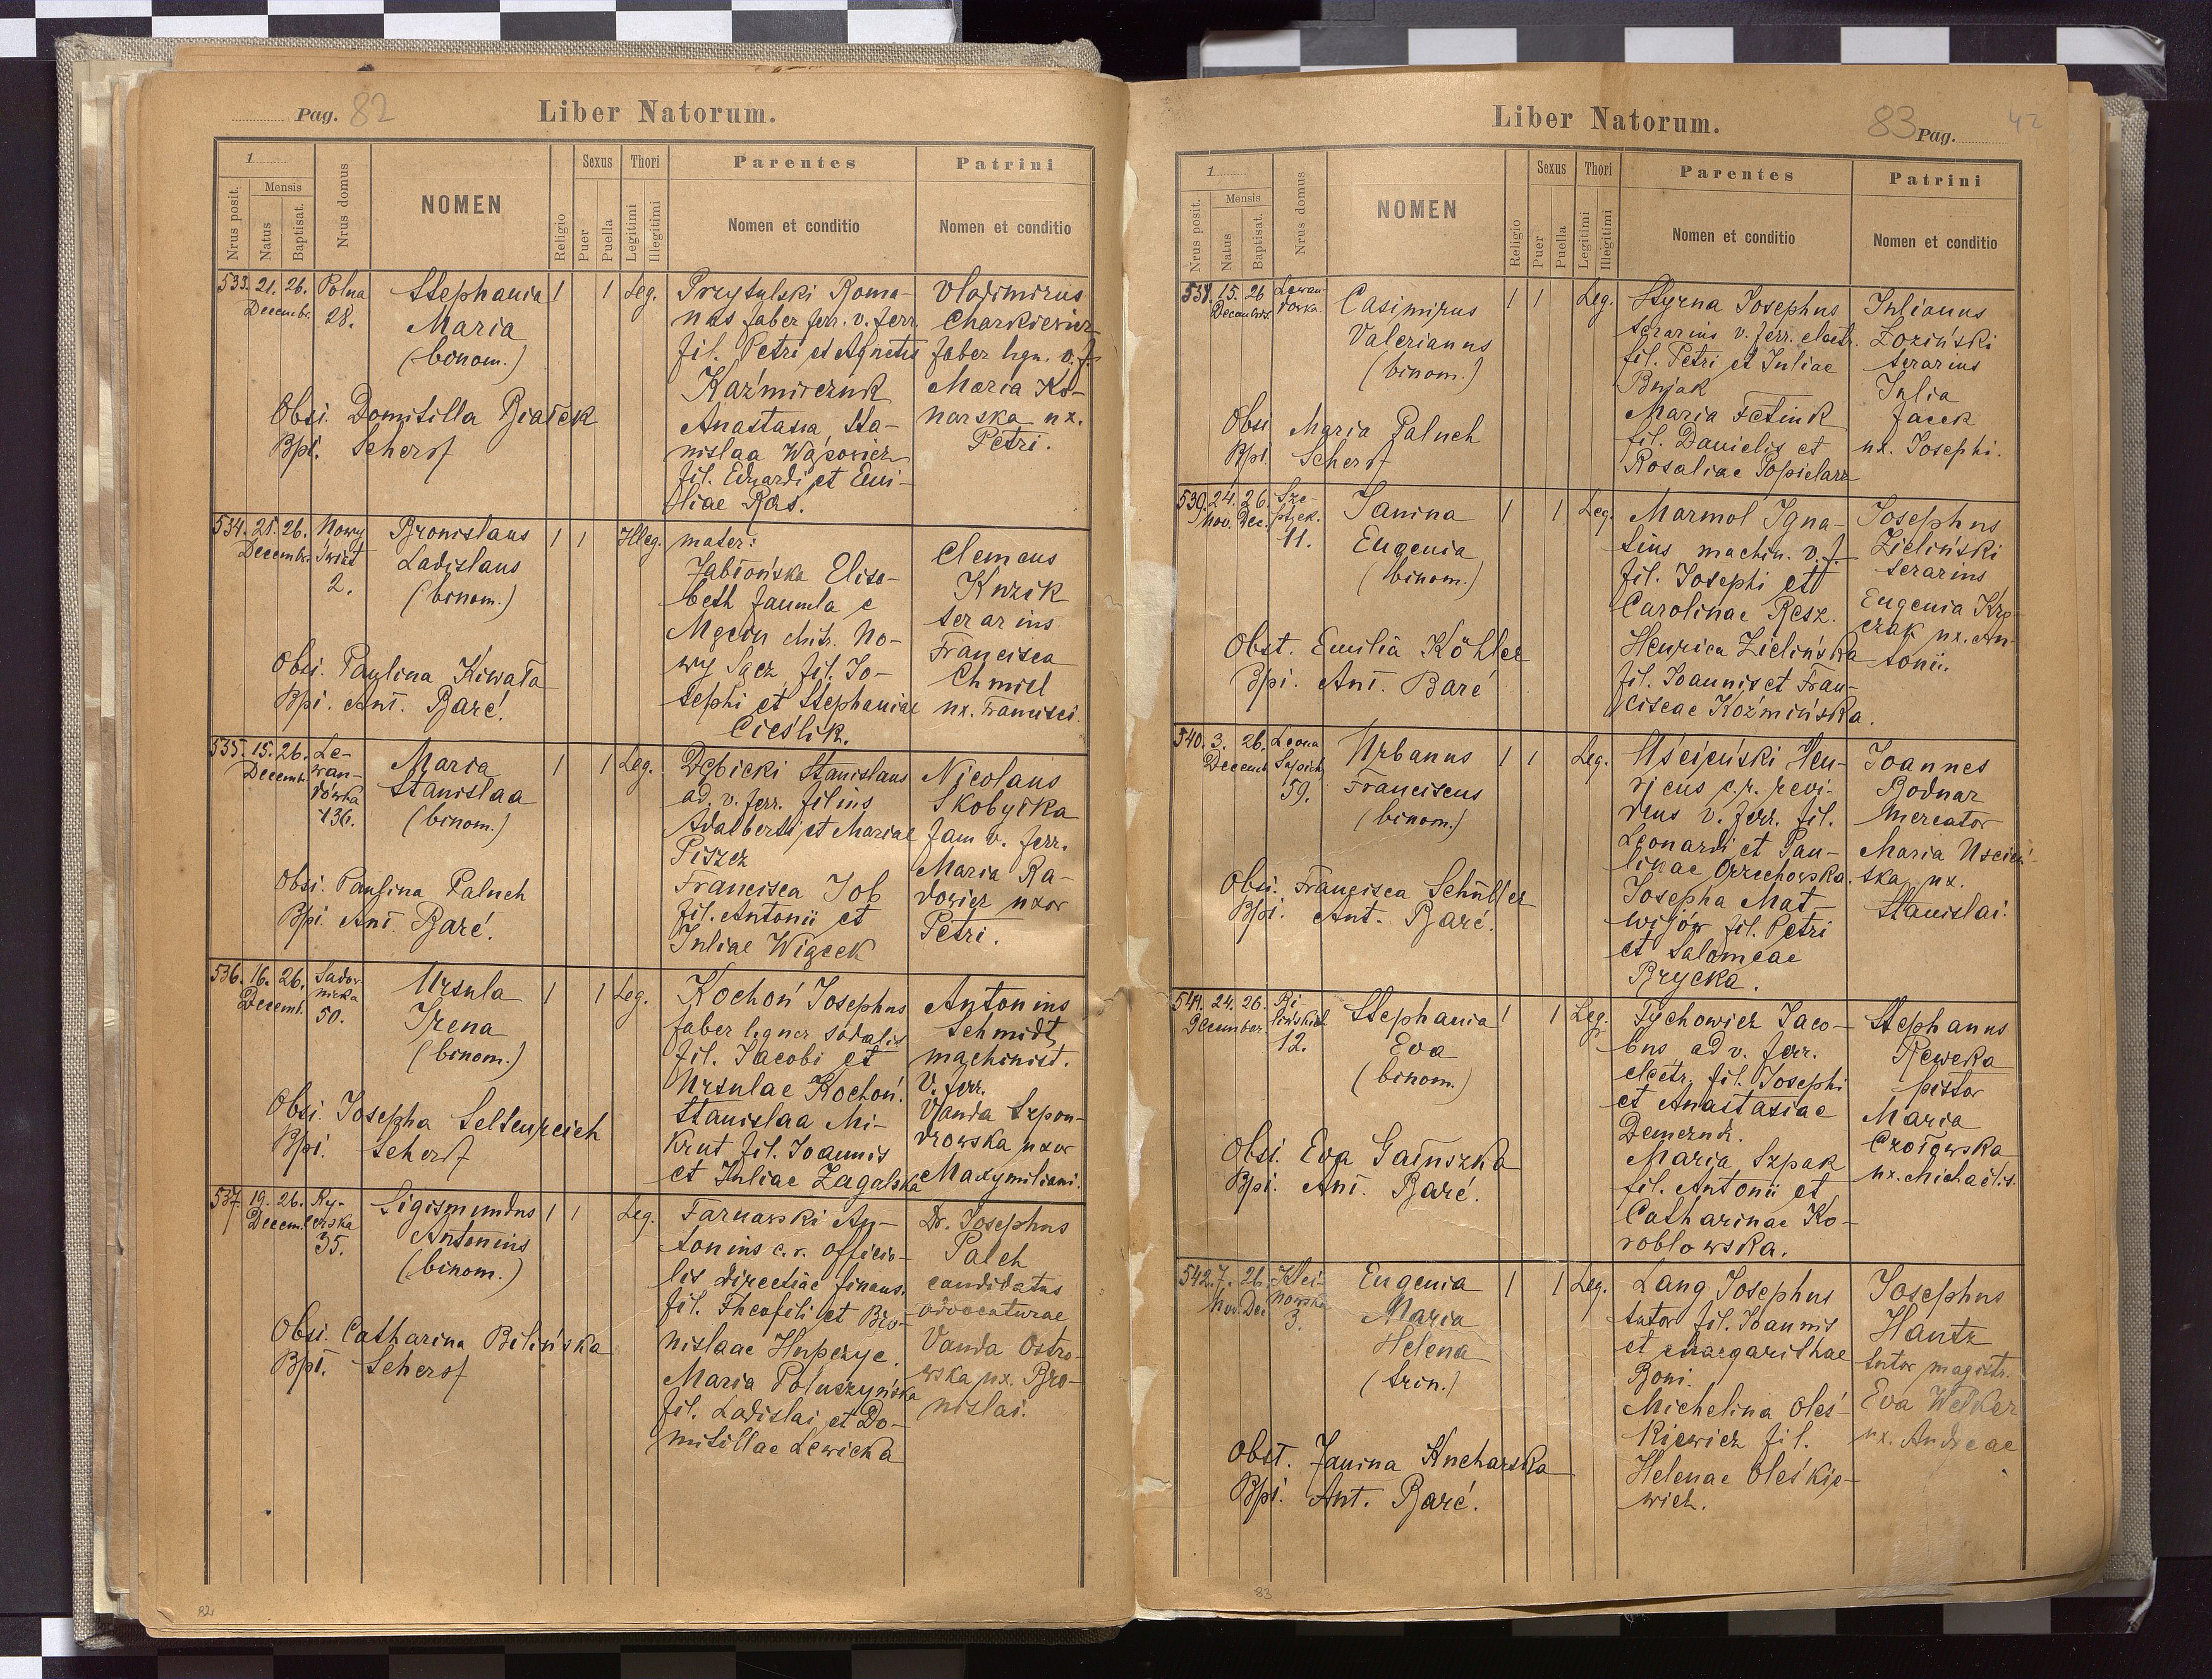 Pag. 82
Liber Natorum.
1
Nrus posit.
Mensis
Natus
Baptisat.
Nrus domus
NOMEN
Religio
Sexus
Puer
Puella
Thori
Legitimi
Illegitimi
Parentes
Nomen et conditio
Patrini
Nomen et conditio
533. 21. 26.
Decembr.
Polna
28.
Stephania
Maria
(binom.)
1 1 Leg.
Obsi. Domitilla Białek
Bpi. Scherff
Przytulski Roma-
nus faber ferr. v. ferr.
fil. Petri et Agnetis
Kaźmirczuk
Anastasia, Sta-
nislaa Wąsowicz
fil. Eduardi et Emi-
liae Ras.
Vladimirus
Charkiewicz
faber lign. v. f.
Maria Ko-
narska ux.
Petri.
534. 21. 26.
Decembr.
Nowy
Świat
2.
Bronislaus
Ladislaus
(binom.)
1 1 Illeg.
Obsi. Paulina Kiwała
Bpi. Ant. Baré.
mater:
Jabłońska Elisa-
beth famula e
No-
wy Sącz, fil. Jo-
sephi et Stephaniae
Cieślik.
Clemens
Kuzik
serarius
Francisca
Chmiel
ux. Francisci.
535. 15. 26.
Decemb.
Le-
wan-
dówka
136.
Maria
Stanislaa
(binom.)
1 1 Leg.
Obsi. Paulina Paluch
Bpi. Ant. Baré.
Dębicki Stanislaus
ad. v. ferr. filius
Adalberti et Mariae
Piszcz
Francisca Job
fil. Antonii et
Juliae Wiącek
Nicolaus
Skobyłka
fam v. ferr.
Maria Ra-
dowicz uxor
Petri.
536. 16. 26.
Decemb.
Sadow
nicka
50.
Ursula
Irena
(binom.)
1 1 Leg.
Obsi. Josepha Seltenreich
Bpi. Scherff
Kochoń Josephus
faber lignar. sodalis
fil. Jacobi et
Ursulae Kochoń.
Stanislaa Mi-
krut fil. Joannis
et Juliae Zagalska
Antonius
Schmidt
machinist.
v. ferr.
Vanda Szpon-
drowska uxor
Maxymiliani.
537. 19. 26.
Decem.
Ry-
cerska
35.
Sigismundus
Antonius
(binom.)
1 1 Leg.
Obsi. Catharina Bilińska
Bpi. Scherff
Tarnawski An-
tonius c. r. officia-
lis directiae finans.
fil. Theofili et Bro-
nislaae Hupczyc.
Maria Poluszyńska
fil. Ladislai et Do-
mitillae Lewicka
Dr. Josephus
Palch
candidatus
advocaturae
Vanda Ostro-
wska ux. Bro-
nislai.
82
Liber Natorum.
83 Pag.
42
1
Nrus posit.
Mensis
Natus
Baptisat.
Nrus domus
NOMEN
Religio
Sexus
Puer
Puella
Thori
Legitimi
Illegitimi
Parentes
Nomen et conditio
Patrini
Nomen et conditio
538. 15. 26
Decembris.
Lewan-
dowka
Casimirus
Valerianus
(binom.)
1 1 Leg.
Obsi Maria Paluch
Bpi. Scherff
Styrna Josephus
serarius v. ferr. electr.
fil. Petri et Juliae
Bujak
Maria Fetink
fil. Danielis et
Rosaliae Popielarz
Julianus
Łoziński
serarius
Julia
Jacek
ux. Josephi.
539. 24. 26.
Nov. Dec.
Sze-
ptyck.
11.
Janina
Eugenia
(binom.)
1 1 Leg.
Obst. Emilia Köhler
Bpi. Ant. Baré
Marmol Igna-
tius machin. v. f.
fil. Josephi et
Carolinae Resz.
Henrica Zielińska
fil. Joannis et Fran-
ciscae Koźmińska.
Josephus
Zieliński
serarius
Eugenia Krę-
czak ux. An-
tonii.
540. 3. 26.
Decemb.
Leona
Sapieh.
59.
Urbanus
Franciscus
(binom.)
1 1 Leg.
Obsi. Francisca Schübler
Bpi. Ant. Baré.
Uścieński Hen-
ricus c. r. revi-
dens v. ferr. fil.
Leonardi et Pau-
linae Orzechowska.
Josepha Mat-
wijów fil. Petri
et Salomeae
Brycka.
Joannes
Bodnar
Mercator
Maria Uścień-
ska ux.
Stanislai.
541. 24. 26.
December
12.
Stephania
Eva
(binom.)
1 1 Leg.
Obsi. Eva Gałuszka
Bpi. Ant. Baré.
Tychowicz Jaco-
bus ad v. ferr.
electr. fil. Josephi
et Anastasiae
Demczuk.
Maria Szpak
fil. Antonii et
Catharinae Ko-
roblowska.
Stephanus
Reweka
pistor
Maria
Czołowska
ux. Michaëlis.
542. 7. 26.
Nov. Dec.
Klei-
nowska
3.
Eugenia
Maria
Helena
(trin.)
1 1 Leg.
Obst. Janina Kucharska
Bpi. Ant. Baré.
Lang Josephus
sutor fil. Joannis
et Margarithae
Boni.
Michelina Oleś-
kiewicz fil.
Helenae Oleśkie-
wicz.
Josephus
Hantz
sutor magistr.
Eva Welker
ux. Andreae
83